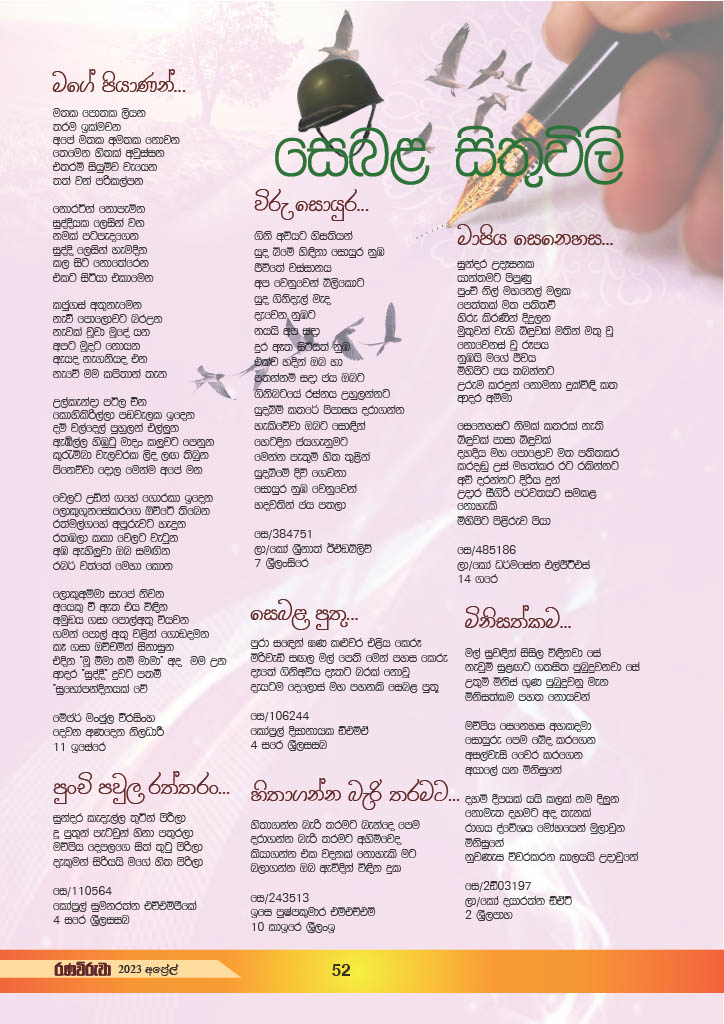 සෙබළ සිතුවිලි
මගේ පියාණන්...
මතක පොතක ලියන
තරම් ඉක්මවන
අපේ මතක අමතක නොවන
තෙමෙන හිතක් අවුස්සන
එතරම් සියුම්ව වැයෙන
තත් වන් පරිකල්පන
නොරටින් නොපැමින
සුද්දියක ලෙසින් වන
නමක් පටපැදගෙන
සුද්දි ලෙසින් හැමදින
කල සිට නොතේරෙන
එකට සිටියා එකාමෙන
කජුගස් අතුනැමෙන
නැව් පොලොවට බරඋන
නැවක් වූවා මුදේ යන
අපට මුදට නොයන
ඇයද නැගනියද එන
නැවේ මම කපිතාන් තැන
උල්කැන්දා පටිල චීන
කොහිකිරිල්ලා පඩවැලක ඉදෙන
දම් වල්දෙල් පුහුලන් එල්ලුන
ඇඹිල්ල හිඹුටු මාදං කලුවට පෙනුන
කුරුම්බා වැලවරක ලිද ලඟ තිබුන
පිනෙව්වා දොල මෙන්ම අපේ මන
වෙලට උඩින් ගහේ ගොරකා ඉදෙන
ලොකුගුනසේකරගෙ ඕව්ටේ තිබෙන
රත්මල්ගහේ අපූරුවට හැදුන
රතඹලා කකා වෙලට වැටුන
අඹ ඇහිලුවා ඔබ සමඟින
රබර් වත්තේ මෙහා කොන
ලොකුඅම්මා සැපේ නිවන
අයෙකු වී ඇත එය විඳින
අමුඩය ගසා පොල්අතු වියවන
ගමන් පොල් අතු වළින් ගොඩදමන
කෑ ගසා ඔච්චමින් සිනාසුන
එදින "මූ මීමා නම් මාමා" අද මම උන
ආදර "සුද්දි" දුවට පනම්
"සුභෝපන්දිනයක් වේ
මේජර් මංජුල වීරසිංහ
දෙවන අණදෙන නිලධාරී
11 ඉසේරෙ
පුංචි පවුල රත්තරං...
සුන්දර කැදැල්ල තුටින් පිරිලා
දූ පුතුන් පැටවුන් හිනා පතුරලා
මව්පිය දෙපලගෙ සිත් තුටු පිරිලා
දැකුමන් සිරියයි මගේ හිත පිරිලා
සෙ/110564
කෝප්‍රල් සුමනරත්න එච්එම්පීකේ
4 සරෙ ශ්‍රීලසසබ
විරු සොයුර...
ගිනි අවියට හිසතියන්
යුද බිමේ හිඳිනා සොයුර නුඹ
ජීවිතේ වස්සානය
අප වෙනුවෙන් බිලිකොට
යුද ගිනිදැල් මැද
දැවෙන නුඹට
නයයි අප සදා
දුර ඈත සිටිසත් නුඹ
එක්ව හදින් ඔබ හා
පතන්නම් සදා ජය ඔබට
ගිනිබටයේ රස්නය උහුලන්නට
යුදබිම් කතරේ පිපාසය දරාගන්න
හැකිවේවා ඔබට සොඳින්
හෙටදින ජයගැනුමට
මෙන්න පැතුම් හිත තුළින්
යුදබිමේ දිවි ගෙවනා
සොයුර නුඹ වෙනුවෙන්
හදවතින් ජය පතලා
සෙ/384751
ලා/කෝ ශ්‍රීනාත් ඊඒඩබ්ලිව්
7 ශ්‍රීලංසිරෙ
සෙබළ පුතු...
පුරා සඳෙන් ඝණ කළුවර එළිය කෙරූ
මිරිවැඩි සඟල මල් පෙති මෙන් පහස කෙරු
දෑතේ ගිනිඅවිය දෑතට බරක් නොවූ
දැයටම දෙලොස් මහ පහනකි සෙබළ පුතු
සෙ/106244
කෝප්‍රල් දිසානායක ඩීඑම්ඒ
4 සරෙ ශ්‍රීලසසබ
හිතාගන්න බැරි තරමට...
හිතාගන්න බැරි තරමට බැන්දෙ පෙම
දරාගන්න බැරි තරමට අහිමිවෙද
කියාගන්න එක වදනක් නොහැකි මට
බලාගන්න ඔබ ඇවිදින් විඳින දුක
සෙ/243513
ඉසෙ පුෂ්පකුමාර එම්එච්එම්
10 කාඉරෙ ශ්‍රීලංඉ
මාපිය සෙනෙහස...
සුන්දර උදෑසනක
යාන්තමට පිපුණු
පුංචි නිල් මහනෙල් මලක
පෙත්තක් මත පතිතවී
හිරු කිරණින් දිදුලන
මුතුවන් වැහි බිඳුවක් මතින් මතු වූ
නොවෙනස් වූ රූපය
නුඹයි මගේ ජීවය
මිහිපිට පය තබන්නට
උරුම කරදුන් නොමනා දුක්විඳි කත
ආදර අම්මා
සෙනෙහසට නිමක් කතරක් නැති
බිඳුවක් පාසා බිඳුවක්
දහදිය මහ පොළොව මත පතිතකර
කරදඬු උස් මහත්කර රට රකින්නට
අවි දරන්නට දිරිය දුන්
උදාර සීගිරි පර්වතයට සමකළ
නොහැකි
මිහිපිට පිළිරුව පියා
සෙ/485186
ලා/කෝ ධර්මසේන එල්පීටීඑස්
14 ගරෙ
මිනිසත්කම...
මල් සුවඳින් සිසිල විඳිනවා සේ
නැවුම් සුළඟට ගතසිත පුබුදුවනවා සේ
උතුම් මිනිස් ගුණ පුබුදුවනු මැන
මිනිසත්කම පහත නොයවන්
මව්පිය සෙනෙහස අහකදමා
සොයුරු පෙම බේද කරගෙන
අසල්වැසි වෛර කරගෙන
අයාලේ යන මිනිසුනේ
දහම් දීපයක් යයි කලක් නම් දිලුන
නොමැත දහමට අද තැනක්
රාගය ද්වේශය මෝහයෙන් මුලාවුන
මිනිසුනේ
නුවණැස විවරකරන කාලයයි උදාවුනේ
සෙ/2ඩී03197
ලා/කෝ දයාරත්න ඩීඒටී
2 ශ්‍රීලපාභ
රණවිරුවා 2023 අප්‍රේල්
52